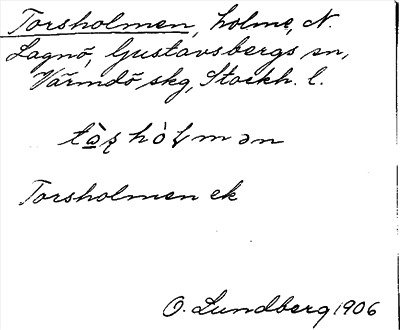 Torsholmen, holme, N.
Lagnö, Gustavsbergs sn,
Värmdö skg, Stockh. l.
tò̱ʂhòɽmən
Torsholmen ek
O. Lundberg 1906